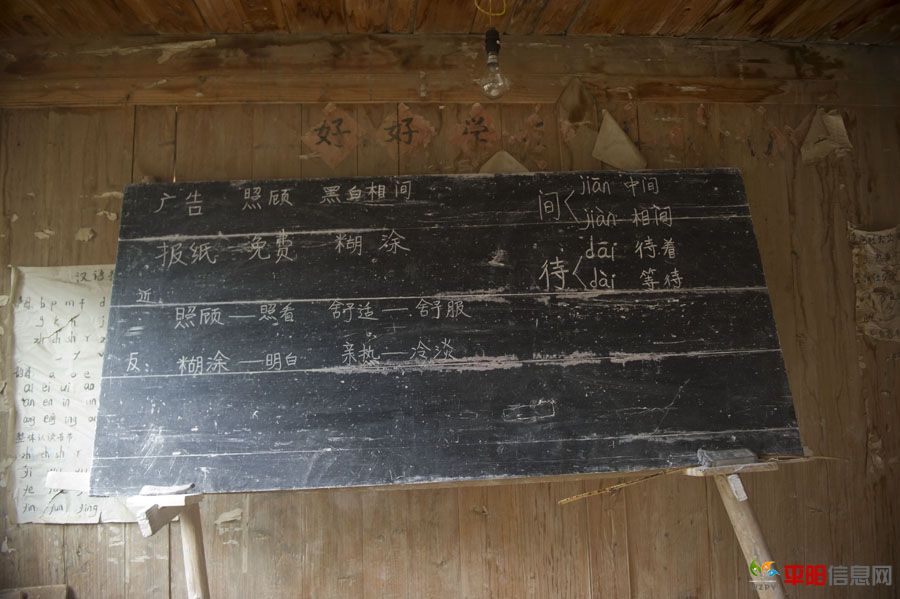 好好学
广告 照顾 黑白相间
间 jiān 中间
jiàn 相间
报纸 免费 糊涂
待 dāi 待着
dài 等待
近
照顾——照看 舒适——舒服
反：糊涂——明白 亲热——冷淡
汉语
b p m f d
g k h j
zh ch sh r
a o e
ai ei ui ao
an en in un
ang eng ing
整体认读音节
zh ch sh r
yin yun ying
平阳信息网